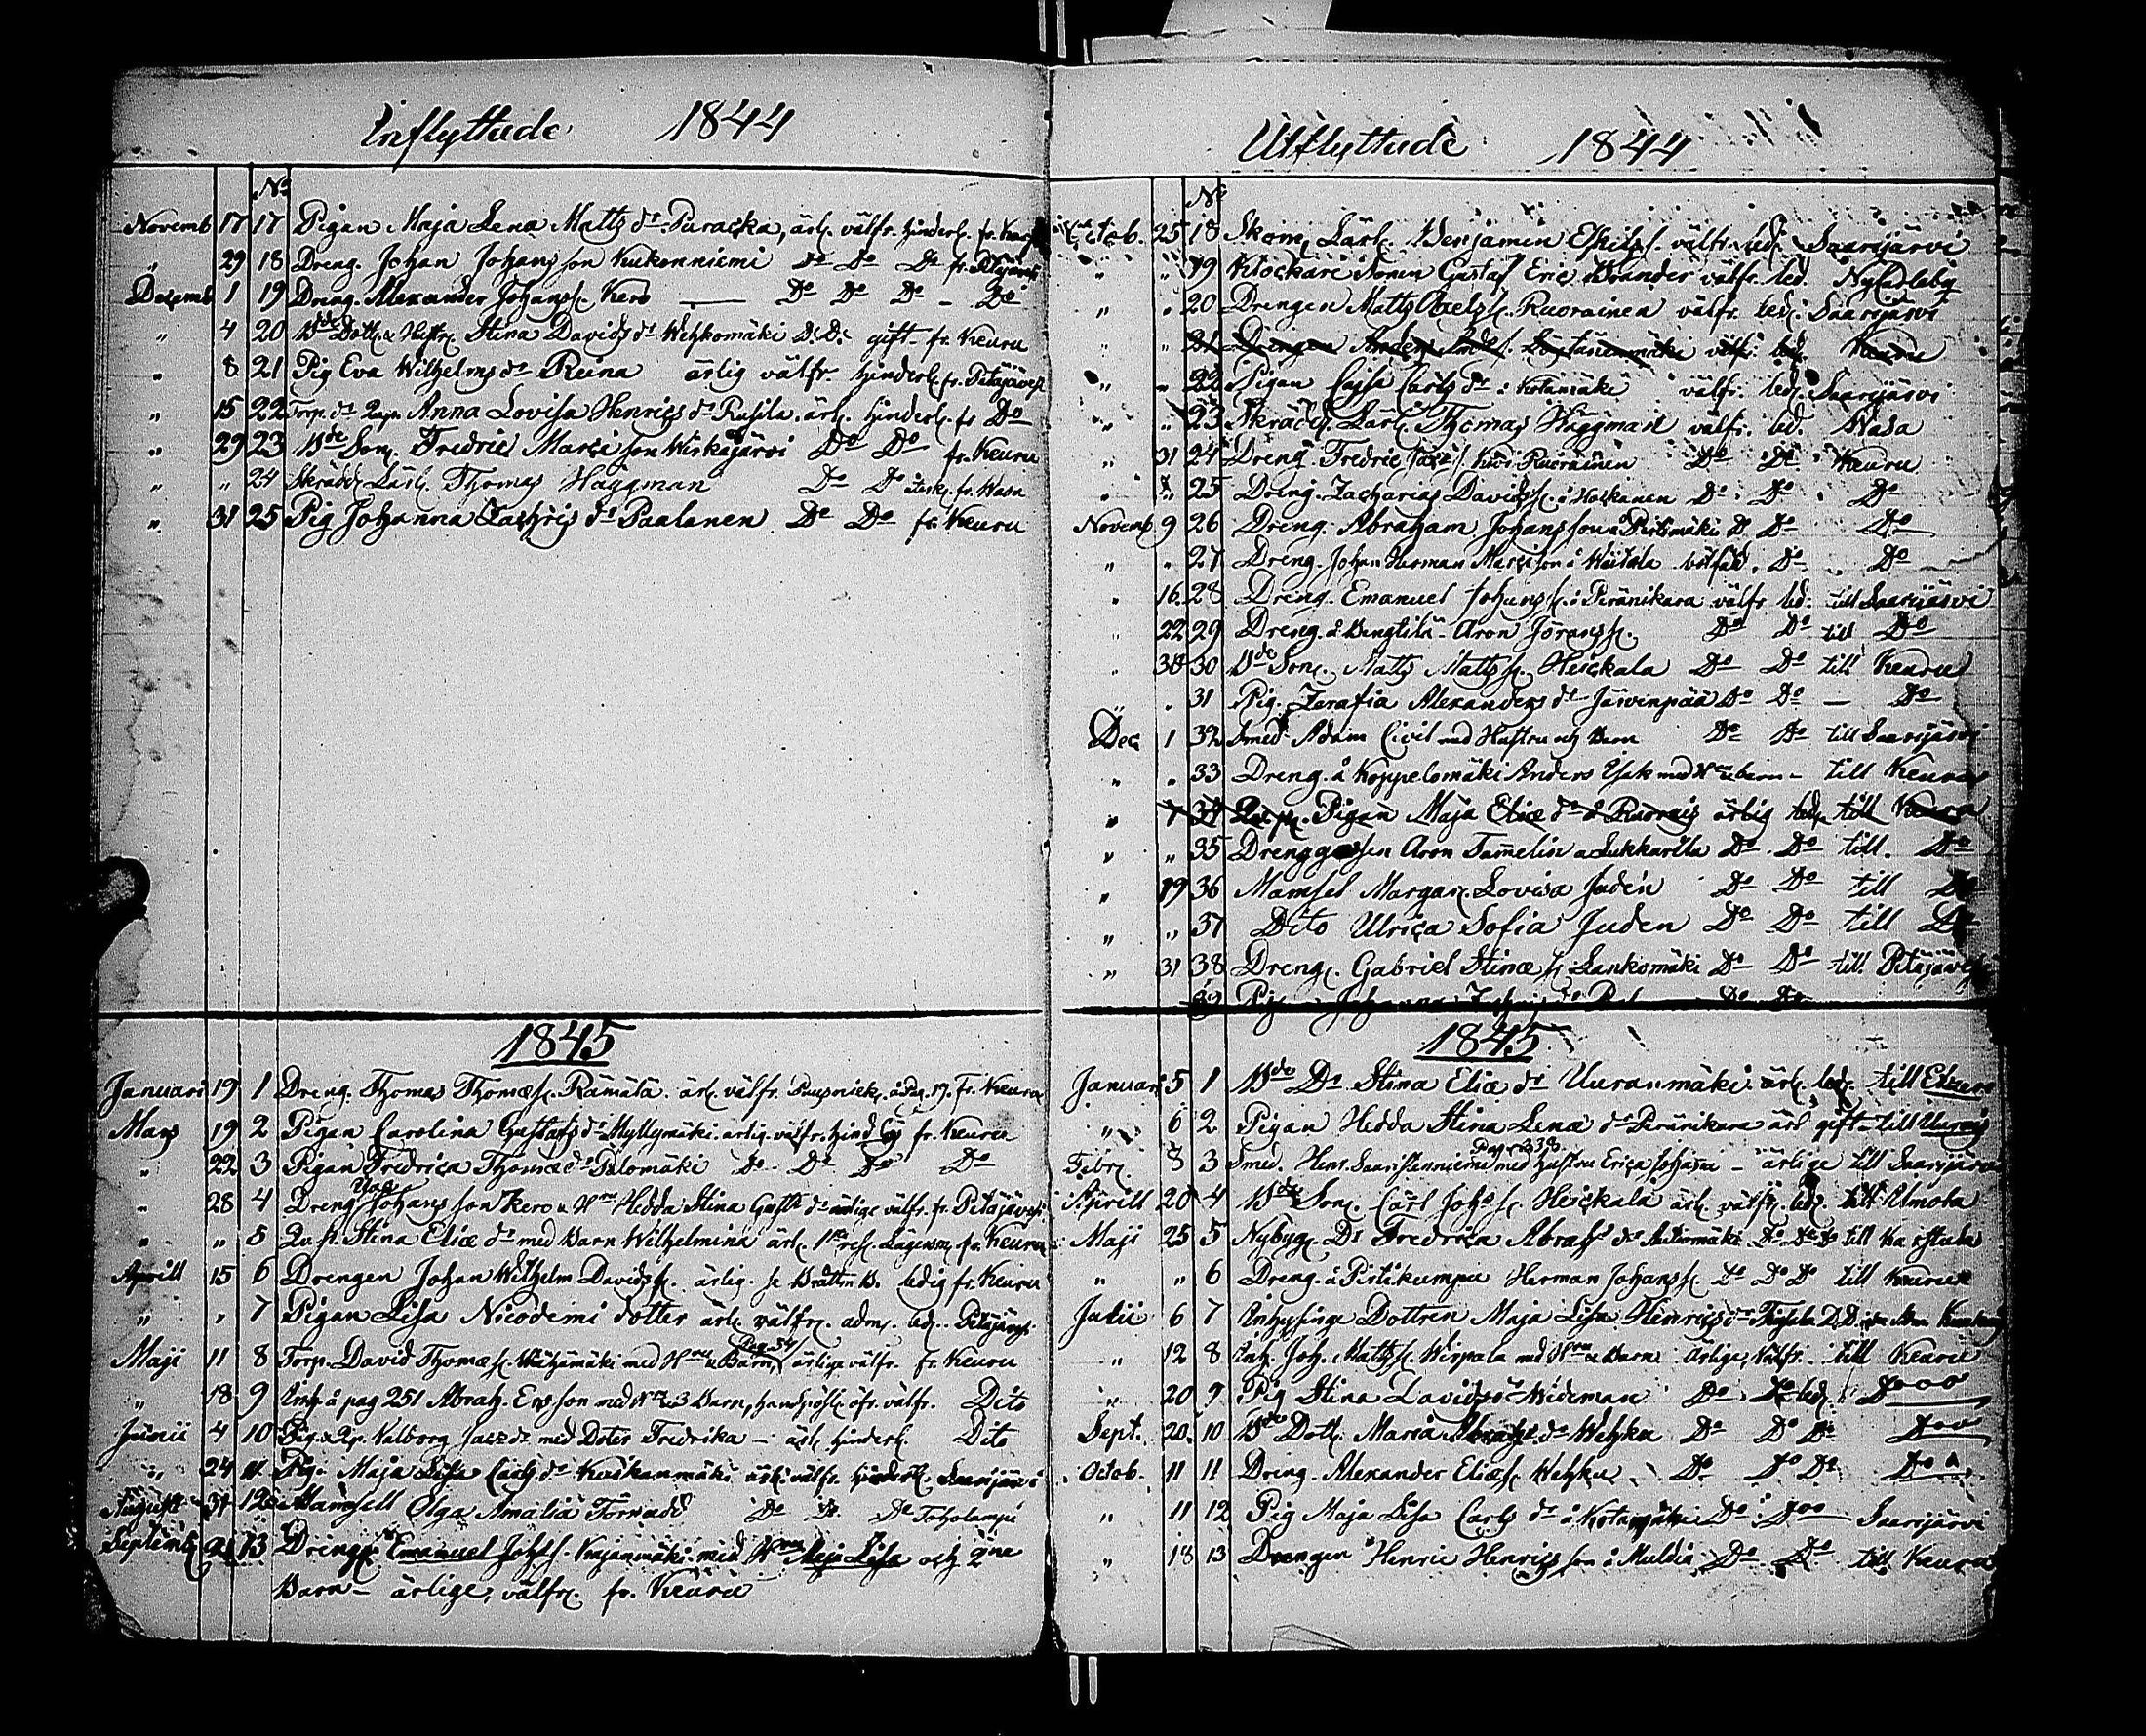 Inflyttade 1844
No
Novemb 17 17 Pigan Maja Lena Matts dr Puracka, ärl. välfr. hinderl. fr.
" 29 18 Dreng. Johan Johansson Kukonniemi Do Do Do fr.
Decemb 1 19 Dreng. Alexander Johanss. Kero — Do Do Do - Do
" 4 20 Stina Davids dr Wehkomäki D. D. gift fr. Keuru
" 8 21 Pig Eva Wilhelms dr Reina ärlig välfr. hinderl. fr. Pitäjäves
" 15 22 Torp. dr Anna Lovisa Henrics dr Rusila. ärl. hinderl. fr Do
" 29 23 Bde Son. Fredric Marci son Wirkajärvi Do Do fr. Keuru
" " 24 Skrädd. Lärl. Thomas Häggman Do Do fr. Wasa
" 31 25 Pig Johanna Zachris dr Paalanen Do Do fr Keuru
1845
Januari 19 1 Dreng. Thomas Thomæs. Rämälä. ärl. välfr. fr. Keuru
Mars 19 2 Pigan Carolina Gustafs dr Myllymäki. ärlig. välfr. fr. Keuru
" 22 3 Pigan Fredrica Thomæ dr Palomäki Do Do Do Do
" 28 4 Dreng Johansson Kero u. Hru Hedda Stina Gust. dr ärlige välfr. fr. Pitäjävesi
" " 5 Stina Eliæ dr med Barn Wilhelmina ärl. fr. Keuru
Aprill 15 6 Drengen Johan Wilhelm Davids. ärlig. ledig fr. Keuru
" " 7 Pigan Lisa Nicodemi dotter ärl. välfr. adm. led. Pitäjäves
Maji 11 8 Torp. David Thomæs. med Hru & Barn, ärlige välfr. fr. Keuru
" 18 9 Inh. å pag 251 Abrah. Ersson med Hru & 3 Barn, välfr. Dito
Junii 4 10 Pig. Valborg Jacs dr med Doter Fredrika — ärl. hinderl. Dito
" 24 11 Pig. Maja Lisa Carls dr Koskanmäki ärl. välfr. hinderl. Saarijärvi
August 31 12 Mamsell Olga Amalia Törnudd Do Do Do Toholampi
Septemb 13 Dreng. Emanuel Johs. med Hru Maja Lisa och 2ne
Barn — ärlige, välfr. fr. Keuru
Utflyttade 1844
No
Octob. 25 18 Skom. Lärl. Benjamin välfr. led. Saarijärvi
" " 19 Klockare Sonen Gustaf Eric Brander välfr. led. Nycarleby
" " 20 Drengen Matts Axelss. Ruorainen välfr. led. Saarijärvi
" " 21 Drengen Anders välfr. led. Keuru
" " 22 Pigan Cajsa Carls dr Kotamäki välfr. led. Saarijärvi
" " 23 Skrädd. Lärl. Thomas Häggman välfr. led. Wasa
" 31 24 Dreng. Fredric Ruorainen Do Do Keuru
" " 25 Dreng. Zacharias Davids. å Hoskanen Do Do Do
Novemb 9 26 Dreng. Abraham Johansson å Pirtimäki Do Do Do
" " 27 Dreng. Johan Herman Marcison å Wiitala Do Do
" 16 28 Dreng. Emanuel Johanss. å Peränikara välfr led. till Saarijärvi
" 22 29 Dreng. å Bengtilä Aron Jöranss. Do Do till Do
" 30 30 Bde Son. Matts Matts. Heickala Do Do till Keuru
" " 31 Pig. Zerafia Alexanders dr Järvenpää Do Do — Do
Dec 1 32 Smed Adam Civil med Hustru och Barn Do Do till Saarijärvi
" " 33 Dreng. å Koppelomäki Anders Esak med Hru & barn — till Keuru
" 7 34 Pigan Maja Eliæ dr å Ruorais ärlig led. till Keuru
" " 35 Drenggossen Aron Tamelin a Lukkarila Do Do till. Do
" 19 36 Mamsel Margar. Lovisa Judén Do Do till Do
" " 37 Dito Ulrica Sofia Juden Do Do till Do
" 31 38 Dreng. Gabriel Stinæ s. Lankomäki Do Do till. Pitäjäves
39 Pigan Johanna Do Do
1845
Januari 5 1 Bde Dr Stina Eliæ dr Uuranmäki ärl. led. till
" 6 2 Pigan Hedda Stina Lenæ dr Peränikara ärl gift — till
Febr 8 3 Smed. Henr. med Hustru Erica Johansdr — ärlige till Saarijärvi
Aprill 20 4 Bde Son. Carl Johs. Heickala ärl. välfr. led. till Ilmola
Maji 25 5 Nybyg. Dr Fredrica Abrahs dr Do Do Do till Karstula
" " 6 Dreng. å Pirtikumpu Herman Johanss. Do Do Do till Keuru
Julii 6 7 Inhysinge Dottren Maja Lisa Henrics dr
" 12 8 Inh. Joh. Matts. Wirpala med Hru & Barn. ärlige, Välfr. till Keuru
" 20 9 Pig Stina Davids dr Wideman Do Do led. Do
Sept. 20 10 Bde Dott. Maria Abrahs. dr Wehka Do Do Do Do
Octob. 11 11 Dreng. Alexander Eliæs. Wehka Do Do Do Do
" 11 12 Pig Maja Lisa Carls dr å Kotamäki Do Do Saarijärvi
" 18 13 Drengen Henric Henricsson å Muldia Do Do till Keuru